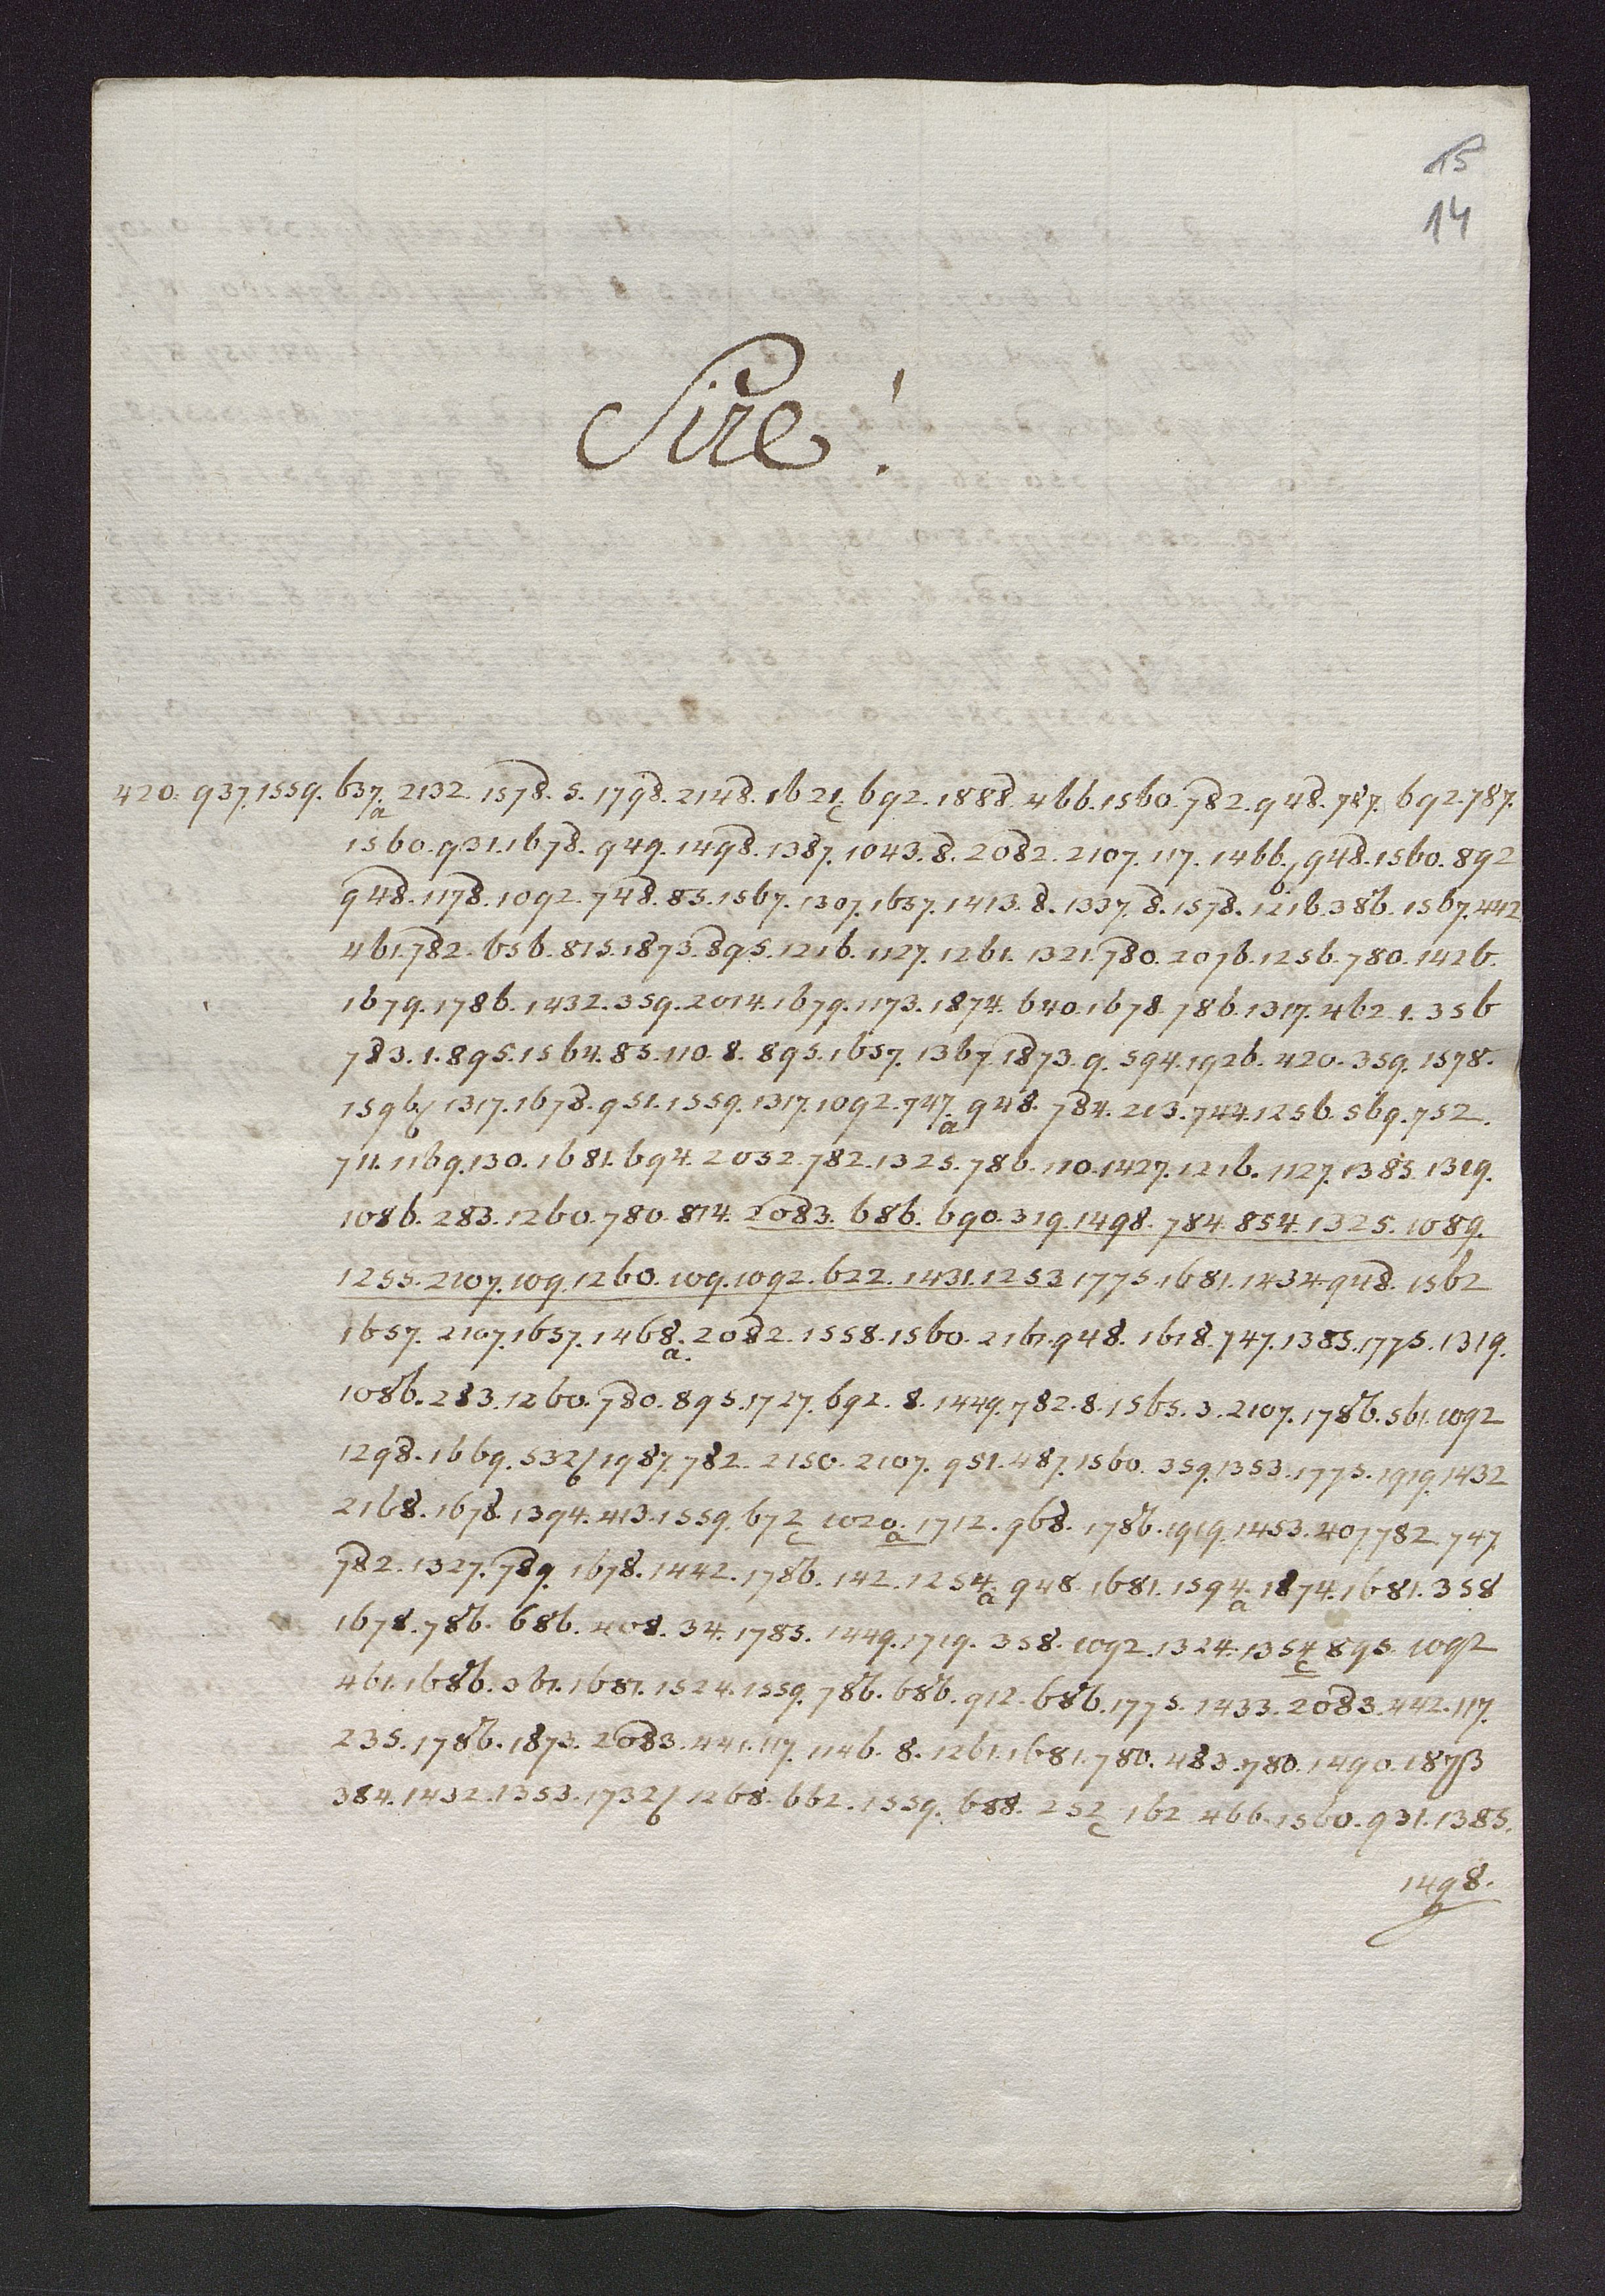 15
14
Sire!
420. 937. 1559. 637a. 2132. 1578. 5. 1798. 2148. 1621c. 692. 1888. 466. 1560. 782. 948. 787. 692. 787.
1560. 931. 1678. 949. 1498. 1387. 1043. 8. 2082. 2107. 117. 1466b. 948. 1560. 892
948. 1178. 1092. 748. 85. 1567. 1307. 1657. 1413. 8. 1337. 8. 1578. 1216. 386. 1567. 442
461. 782. 656. 815. 1873. 895. 1216. 1127. 1261. 1321. 780. 2076. 1256. 780. 1426.
1679. 1786. 1432. 359. 2014. 1679. 1173. 1874. 640. 1678. 786. 1317. 462. 1. 356
783. 1. 895. 1564. 85. 110. 8. 895. 1657. 1367. 1873. 9. 594. 1926. 420. 359. 1578.
1596b 1317. 1678. 951. 1559. 1317. 1092. 747a. 948. 784. 213. 744. 1256. 569. 752.
711. 1169. 130. 1681. 694. 2052. 782. 1325. 786. 110. 1427. 1216. 1127. 1385. 1319.
1086. 283. 1260. 780. 814. 2083. 686. 690. 319. 1498. 784. 854. 1325. 1089.
1255. 2107. 109. 1260. 109. 1092. 622. 1431. 1253 1775. 1681. 1434. 948. 1562
1657. 2107. 1657. 1468a. 2082. 1558. 1560. 2161. 948. 1618. 747. 1385. 1775. 1319.
1086. 283. 1260. 780. 895. 1727. 692. 8. 1449. 782. 8. 1565. 3. 2107. 1786. 561. 1092
1298. 1669. 532b 1987. 782. 2150. 2107. 951. 487. 1560. 359. 1353. 1775. 1919. 1432
2168. 1678. 1394. 413. 1559. 672c 1020a. 1712. 968. 1786. 1919. 1453. 407. 782. 747.
782. 1327. 789. 1678. 1442. 1786. 142. 1254a. 948. 1681. 1594a. 1874. 1681. 358
1678. 786. 686. 408. 34. 1785. 1449. 1719. 358. 1092. 1324. 1354c 895. 1092
461. 1686. 361. 1681. 1524. 1559. 786. 686. 912. 686. 1775. 1433. 2083. 442. 117.
235. 1786. 1873. 2083. 441. 117. 1146. 8. 1261. 1681. 780. 483. 780. 1490. 1873
384. 1432. 1353. 1732b 1268. 662. 1559. 688. 252c 162 466. 1560. 931. 1385.
1498.